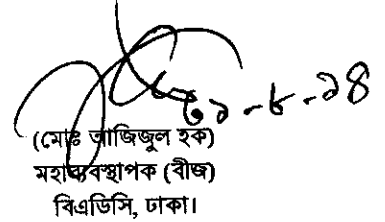 ৩১-৮-১৪
(মোঃ আজিজুল হক)
মহাব্যবস্থাপক (বীজ)
বিএডিসি, ঢাকা।